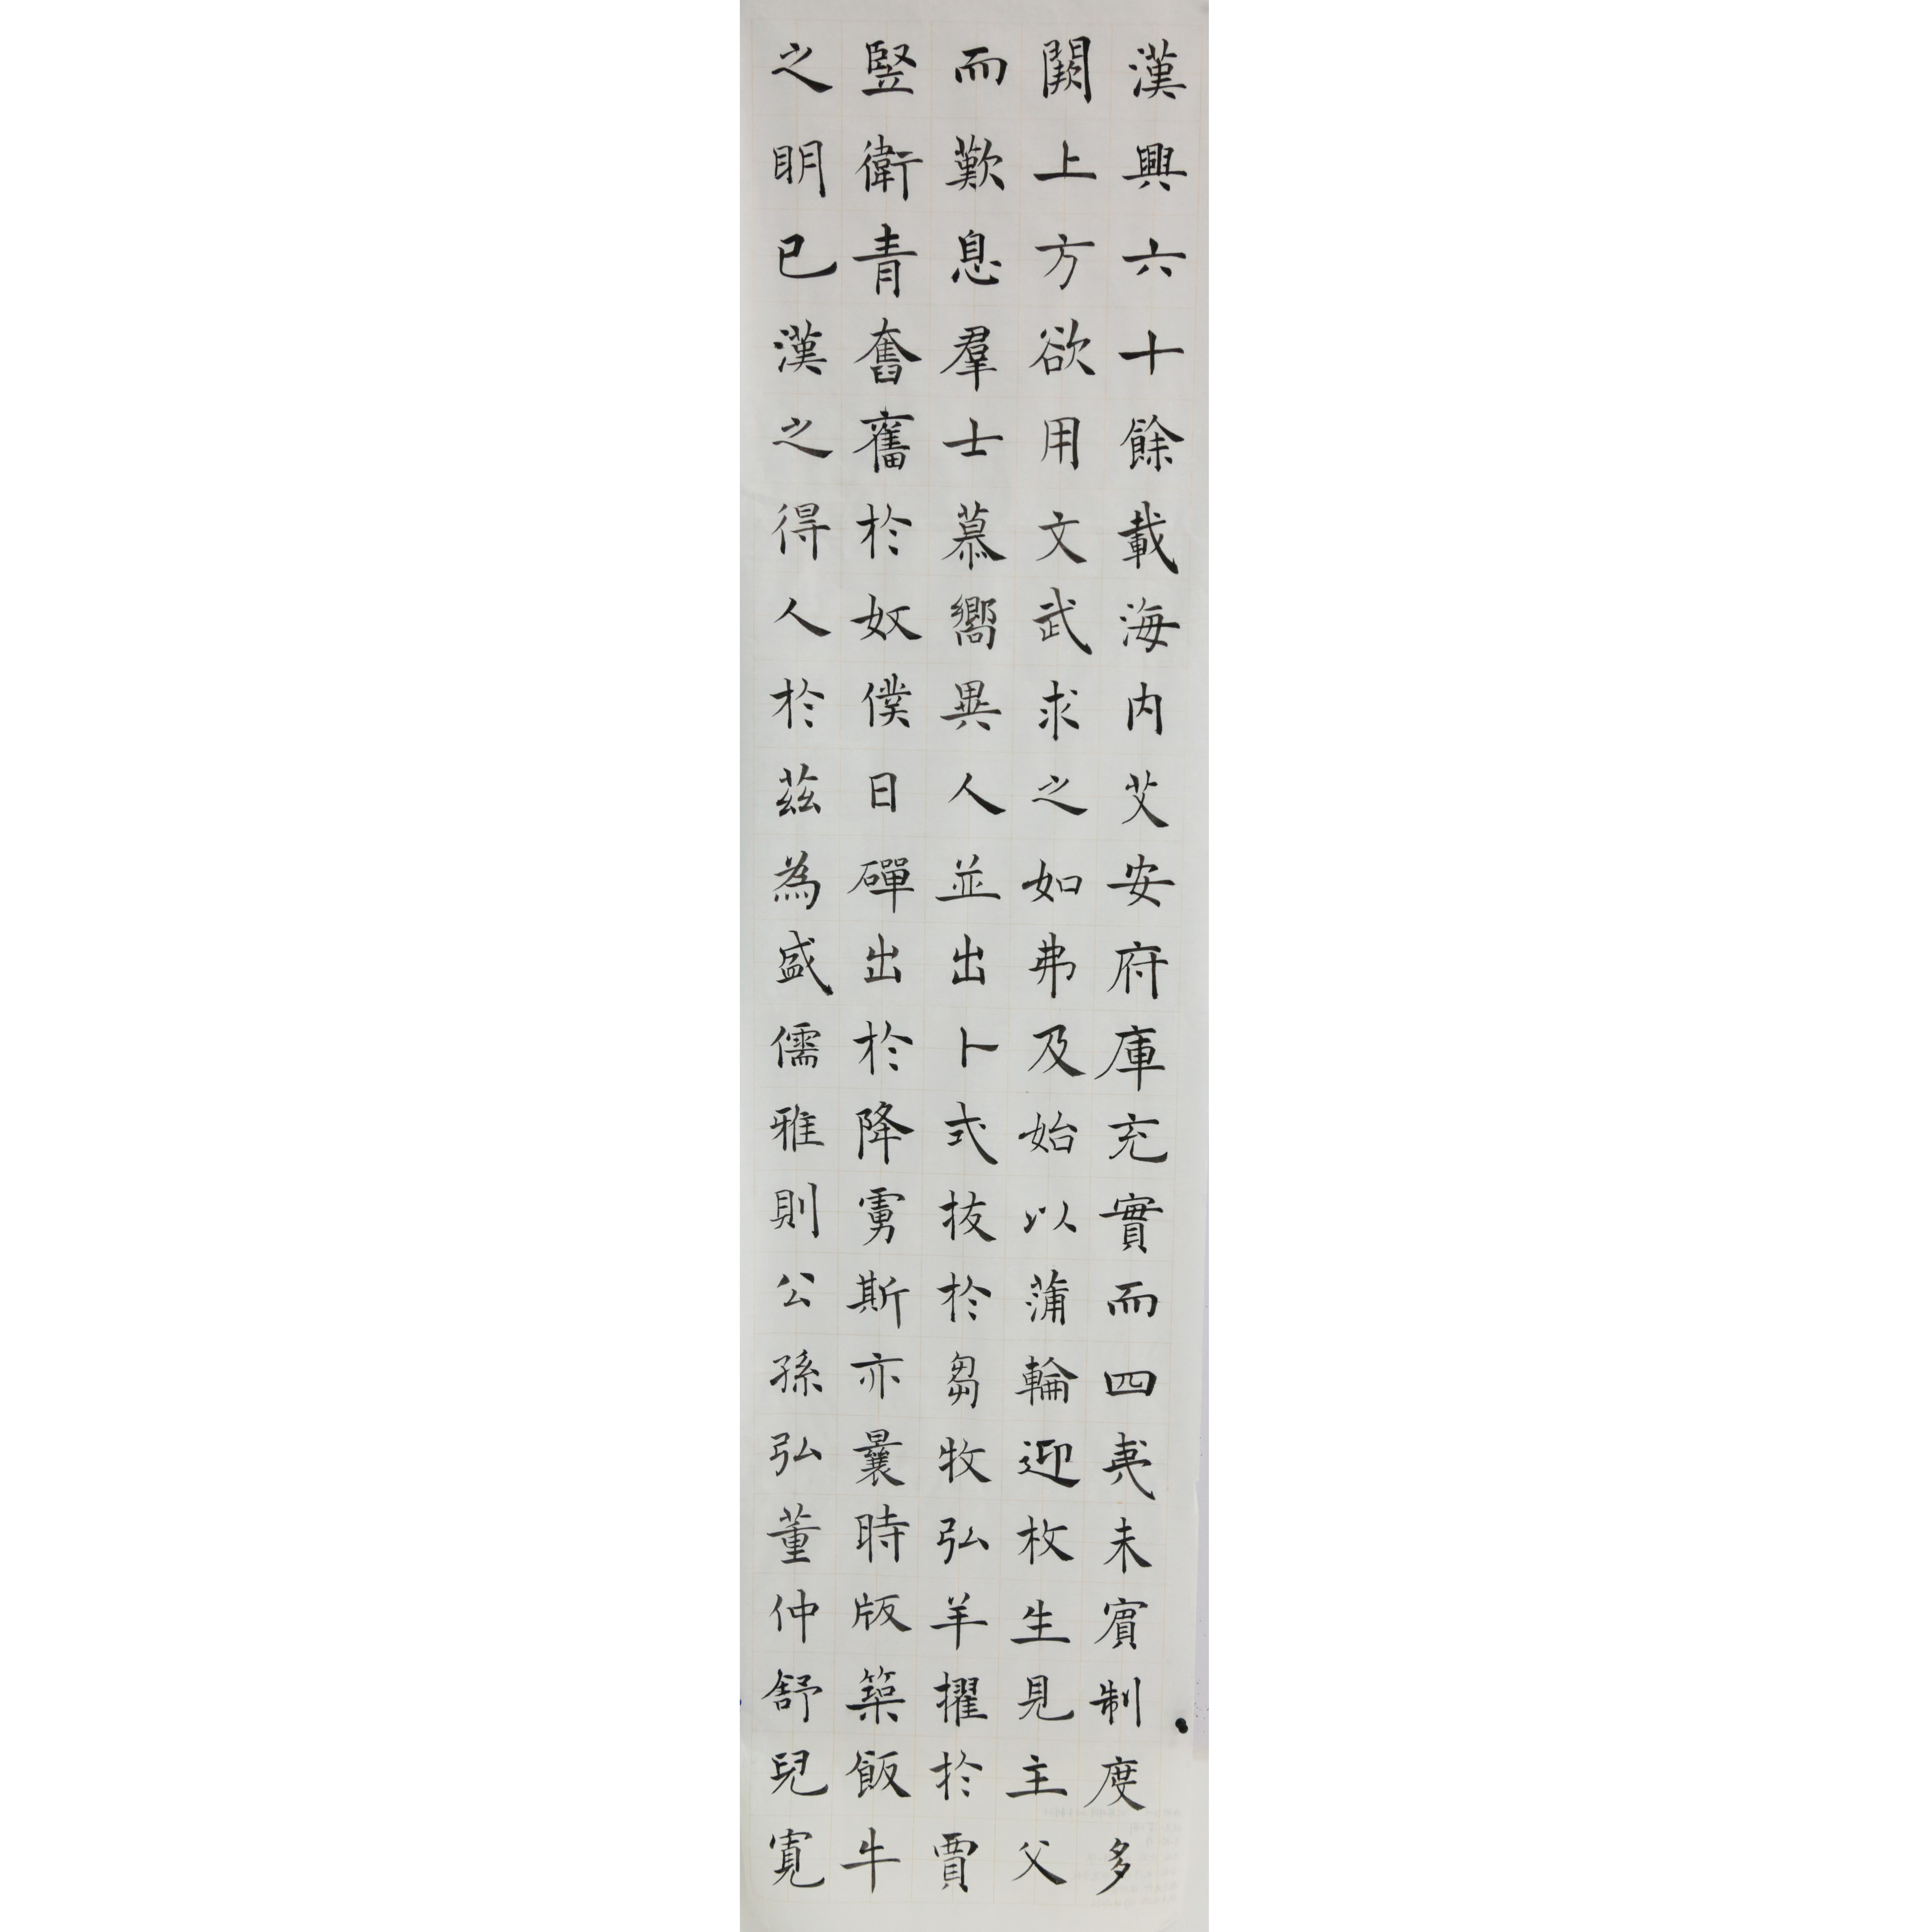 漢興六十餘載海内艾安府庫充實而四夷未賓制度多
闕上方欲用文武求之如弗及始以蒲輪迎枚生見主父
而歎息羣士慕嚮異人並出卜式拔於芻牧弘羊擢於賈
豎衛青奮奮於奴僕日磾出於降虜斯亦曩時版築飯牛
之明已漢之得人於茲為盛儒雅則公孫弘董仲舒兒寬